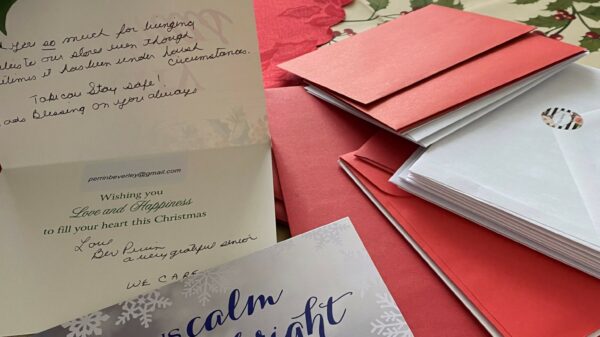 you so much for bringing
to our store even though
it has been under harsh
circumstances.
Take care Stay safe!
Blessing on you always
perrinbeverley@gmail.com
Wishing you
Love and Happiness
to fill your heart this Christmas
Love
Bev Perrin
a very grateful senior
WE CARE
calm
right